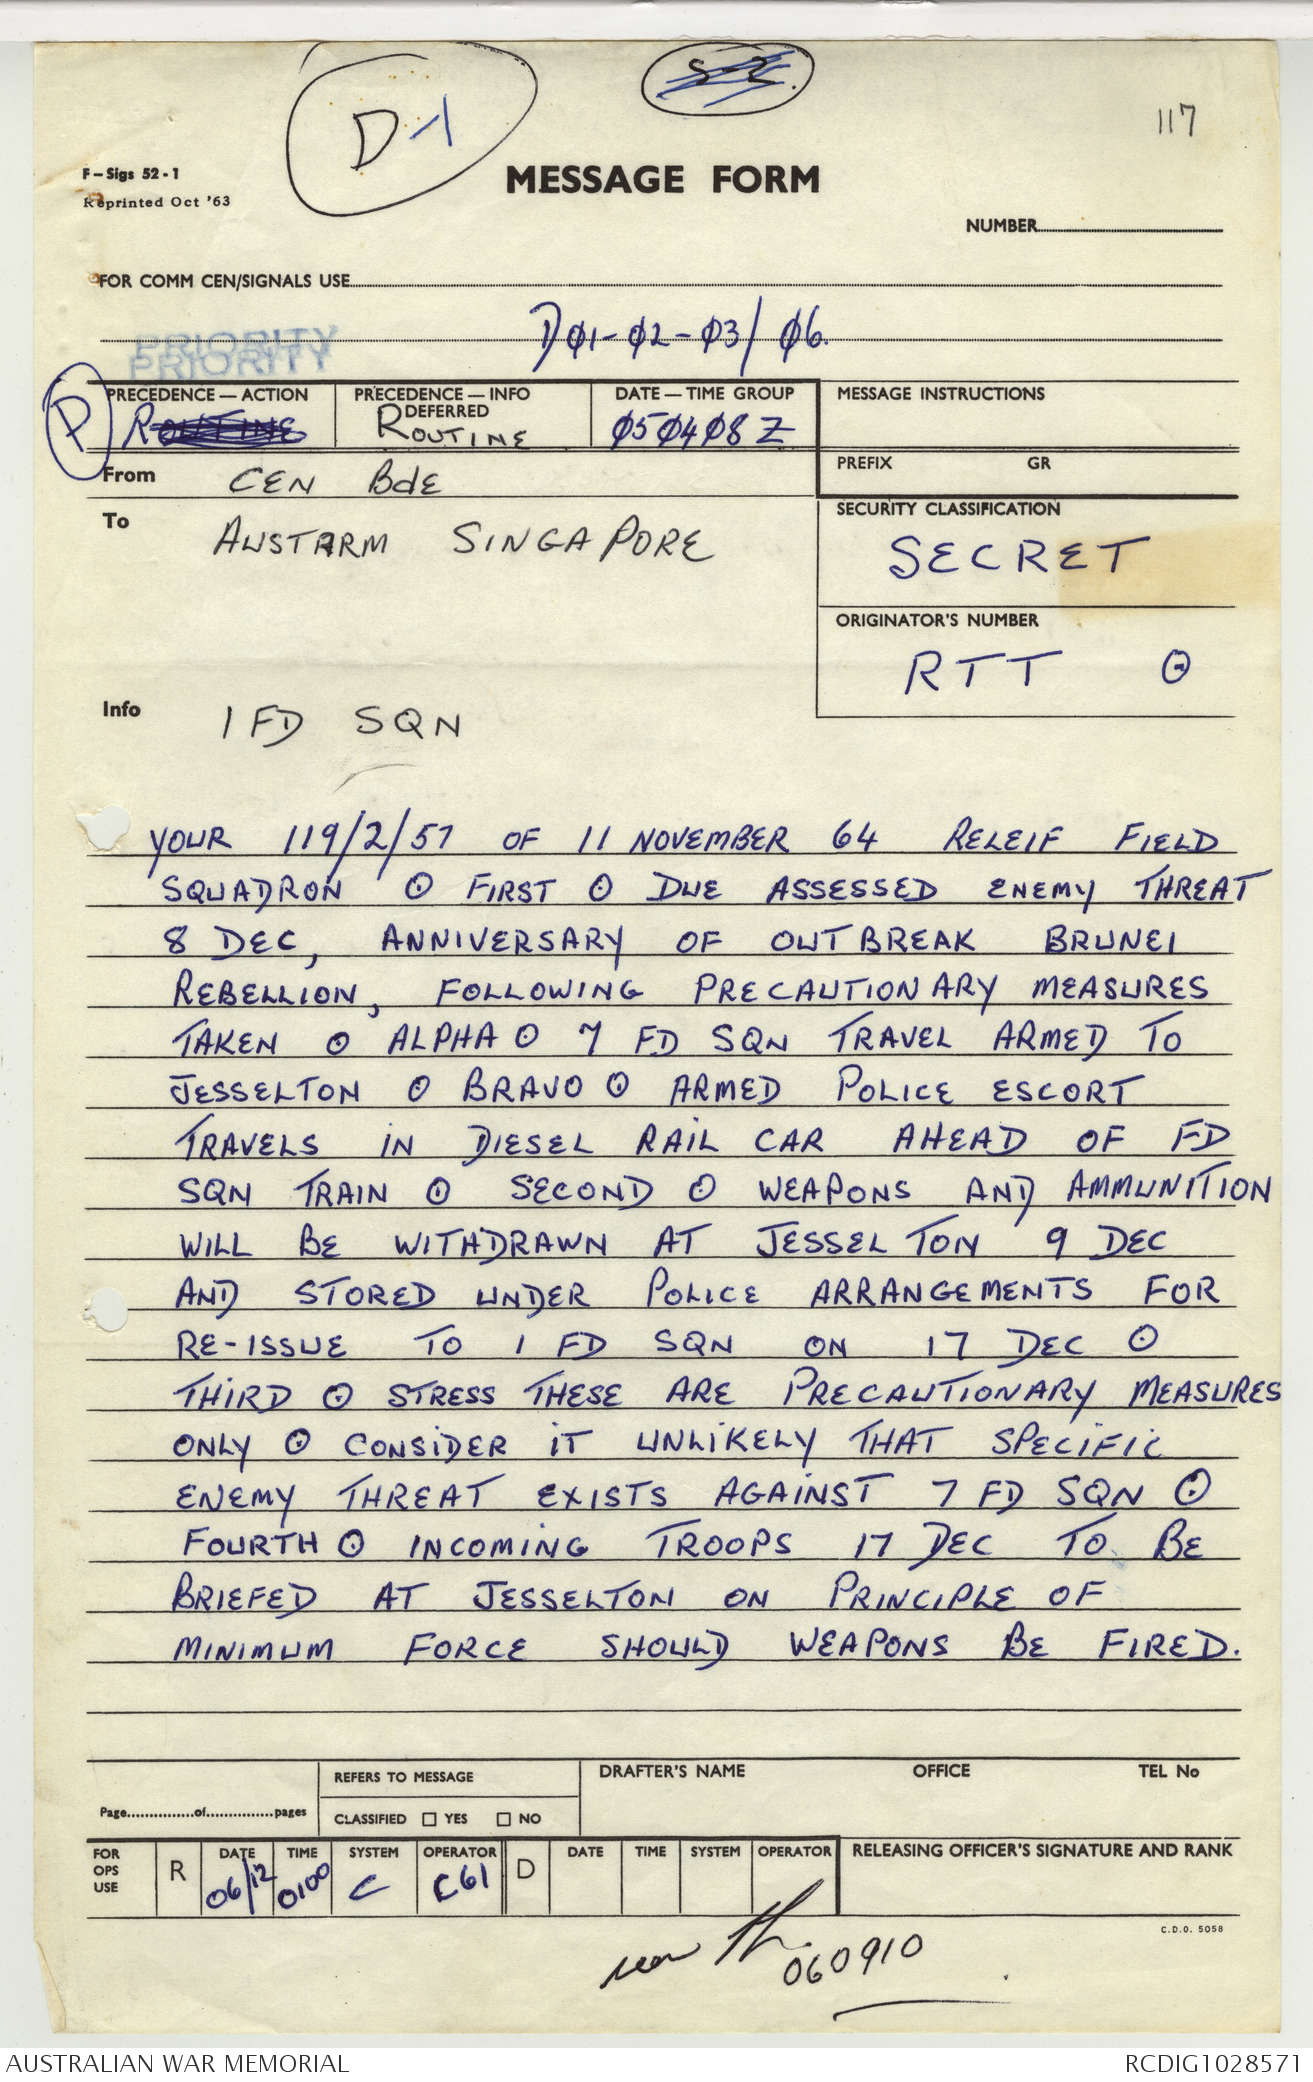 S-2
D-1
117
F - Sigs 52 - 1
Reprinted Oct '63
MESSAGE FORM
NUMBER
FOR COMM CEN/SIGNALS USE
D Ø1-Ø2-Ø3/Ø6.
PRIORITY
PRIORITY
P
PRECEDENCE — ACTION
ROUTINE
PRECEDENCE — INFO
DEFERRED
ROUTINE
DATE — TIME GROUP
Ø5Ø4Ø8Z
MESSAGE INSTRUCTIONS
PREFIX GR
From CEN BdE
To AUSTARM SINGAPORE
SECURITY CLASSIFICATION
SECRET
ORIGINATOR'S NUMBER
RTT ⊙
Info 1 FD SQN
YOUR 119/2/57 OF 11 NOVEMBER 64 RELEIF FIELD
SQUADRON ⊙ FIRST ⊙ DUE ASSESSED ENEMY THREAT
8 DEC, ANNIVERSARY OF OUTBREAK BRUNEI
REBELLION, FOLLOWING PRECAUTIONARY MEASURES
TAKEN ⊙ ALPHA ⊙ 7 FD SQN TRAVEL ARMED TO
JESSELTON ⊙ BRAVO ⊙ ARMED POLICE ESCORT
TRAVELS IN DIESEL RAIL CAR AHEAD OF FD
SQN TRAIN ⊙ SECOND ⊙ WEAPONS AND AMMUNITION
WILL BE WITHDRAWN AT JESSELTON 9 DEC
AND STORED UNDER POLICE ARRANGEMENTS FOR
RE-ISSUE TO 1 FD SQN ON 17 DEC ⊙
THIRD ⊙ STRESS THESE ARE PRECAUTIONARY MEASURES
ONLY ⊙ CONSIDER IT UNLIKELY THAT SPECIFIC
ENEMY THREAT EXISTS AGAINST 7 FD SQN ⊙
FOURTH ⊙ INCOMING TROOPS 17 DEC TO BE
BRIEFED AT JESSELTON ON PRINCIPLE OF
MINIMUM FORCE SHOULD WEAPONS BE FIRED.
Page of pages
REFERS TO MESSAGE
CLASSIFIED ☐ YES ☐ NO
DRAFTER'S NAME OFFICE TEL No
FOR OPS USE
R
DATE 06/12
TIME 0100
SYSTEM C
OPERATOR C61
D
DATE TIME SYSTEM OPERATOR
RELEASING OFFICER'S SIGNATURE AND RANK
C.D.O. 5058
060910
AUSTRALIAN WAR MEMORIAL RCDIG1028571